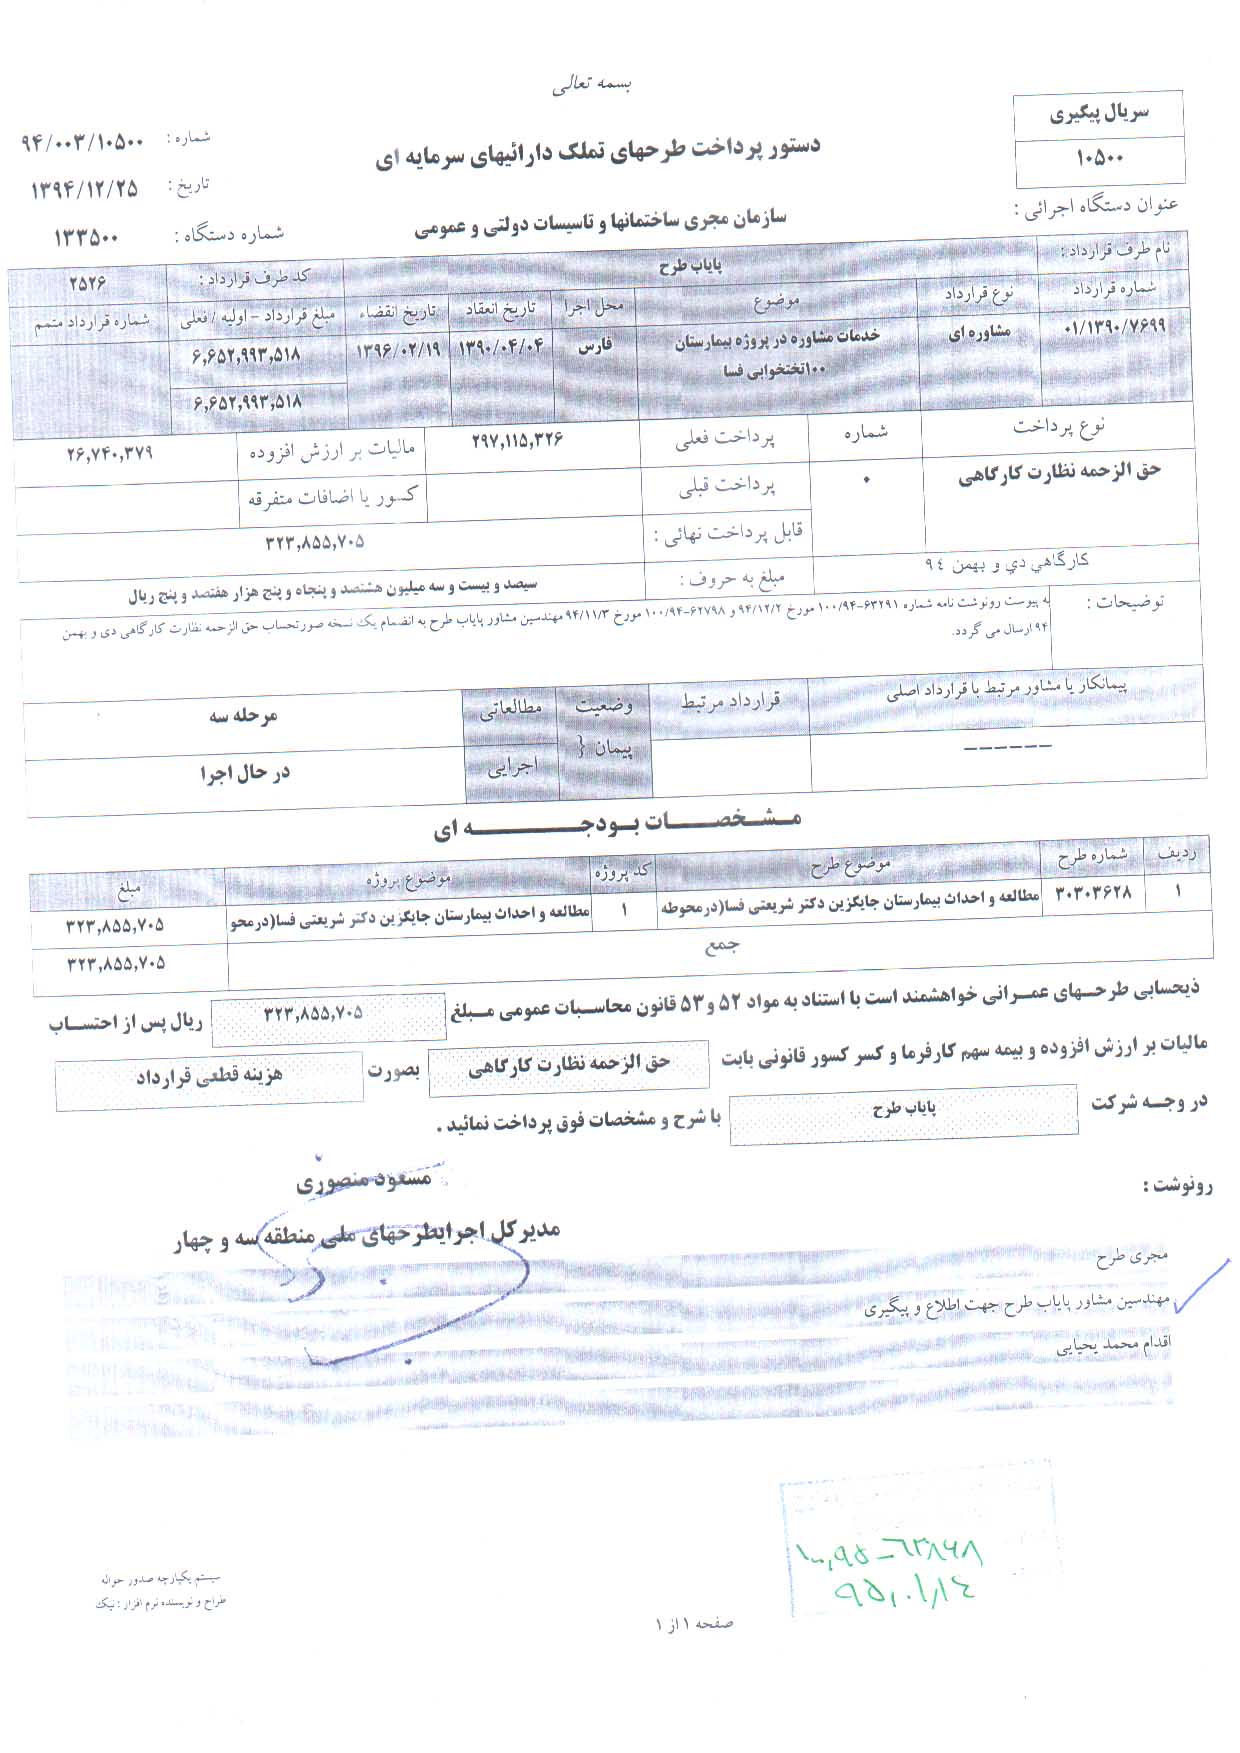 بسمه تعالی
سریال پیگیری
۱۰۵۰۰
دستور پرداخت طرحهای تملک دارائیهای سرمایه ای
شماره : ۹۴/۰۰۳/۱۰۵۰۰
تاریخ : ۱۳۹۴/۱۲/۲۵
عنوان دستگاه اجرائی : سازمان مجری ساختمانها و تاسیسات دولتی و عمومی
شماره دستگاه : ۱۳۳۵۰۰
نام طرف قرارداد : پایاب طرح کد طرف قرارداد : ۲۵۲۶
شماره قرارداد نوع قرارداد موضوع محل اجرا تاریخ انعقاد تاریخ انقضاء مبلغ قرارداد - اولیه / فعلی شماره قرارداد متمم
۰۱/۱۳۹۰/۷۶۹۹ مشاوره ای خدمات مشاوره در پروژه بیمارستان فارس ۱۳۹۰/۰۴/۰۴ ۱۳۹۶/۰۲/۱۹ ۶,۶۵۲,۹۹۳,۵۱۸
۱۰۰تختخوابی فسا ۶,۶۵۲,۹۹۳,۵۱۸
نوع پرداخت شماره پرداخت فعلی ۲۹۷,۱۱۵,۳۲۶ مالیات بر ارزش افزوده ۲۶,۷۴۰,۳۷۹
حق الزحمه نظارت کارگاهی ۰ پرداخت قبلی کسور یا اضافات متفرقه
قابل پرداخت نهائی : ۳۲۳,۸۵۵,۷۰۵
کارگاهي دي و بهمن ۹٤ مبلغ به حروف : سیصد و بیست و سه میلیون هشتصد و پنجاه و پنج هزار هفتصد و پنج ریال
توضیحات : به پیوست رونوشت نامه شماره ۶۳۲۹۱-۱۰۰/۹۴ مورخ ۹۴/۱۲/۲ و ۶۲۷۹۸-۱۰۰/۹۴ مورخ ۹۴/۱۱/۳ مهندسین مشاور پایاب طرح به انضمام یک نسخه صورتحساب حق الزحمه نظارت کارگاهی دی و بهمن
۹۴ ارسال می گردد.
پیمانکار یا مشاور مرتبط با قرارداد اصلی قرارداد مرتبط وضعیت مطالعاتی مرحله سه
------ پیمان { اجرایی در حال اجرا
مـشـخـصـــات بـودجـــــــه ای
ردیف شماره طرح موضوع طرح کد پروژه موضوع پروژه مبلغ
۱ ۳۰۳۰۳۶۲۸ مطالعه و احداث بیمارستان جایگزین دکتر شریعتی فسا(درمحوطه ۱ مطالعه و احداث بیمارستان جایگزین دکتر شریعتی فسا(درمحو ۳۲۳,۸۵۵,۷۰۵
جمع ۳۲۳,۸۵۵,۷۰۵
ذیحسابی طرحـهای عمـرانی خواهشمند است با استناد به مواد ۵۲ و ۵۳ قانون محاسبات عمومی مـبلغ ۳۲۳,۸۵۵,۷۰۵ ریال پس از احتسـاب
مالیات بر ارزش افزوده و بیمه سهم کارفرما و کسر کسور قانونی بابت حق الزحمه نظارت کارگاهی بصورت هزینه قطعی قرارداد
در وجـه شرکت پایاب طرح با شرح و مشخصات فوق پرداخت نمائید .
مسعود منصوری
رونوشت :
مدیرکل اجرایطرحهای ملی منطقه سه و چهار
مجری طرح
مهندسین مشاور پایاب طرح جهت اطلاع و پیگیری
اقدام محمد یحیایی
۱۰۰,۹۵-۶۳۸۶۸
۹۵,۰۱,۱٤
سیستم یکپارچه صدور حواله
طراح و نویسنده نرم افزار : نیک
صفحه ۱ از ۱